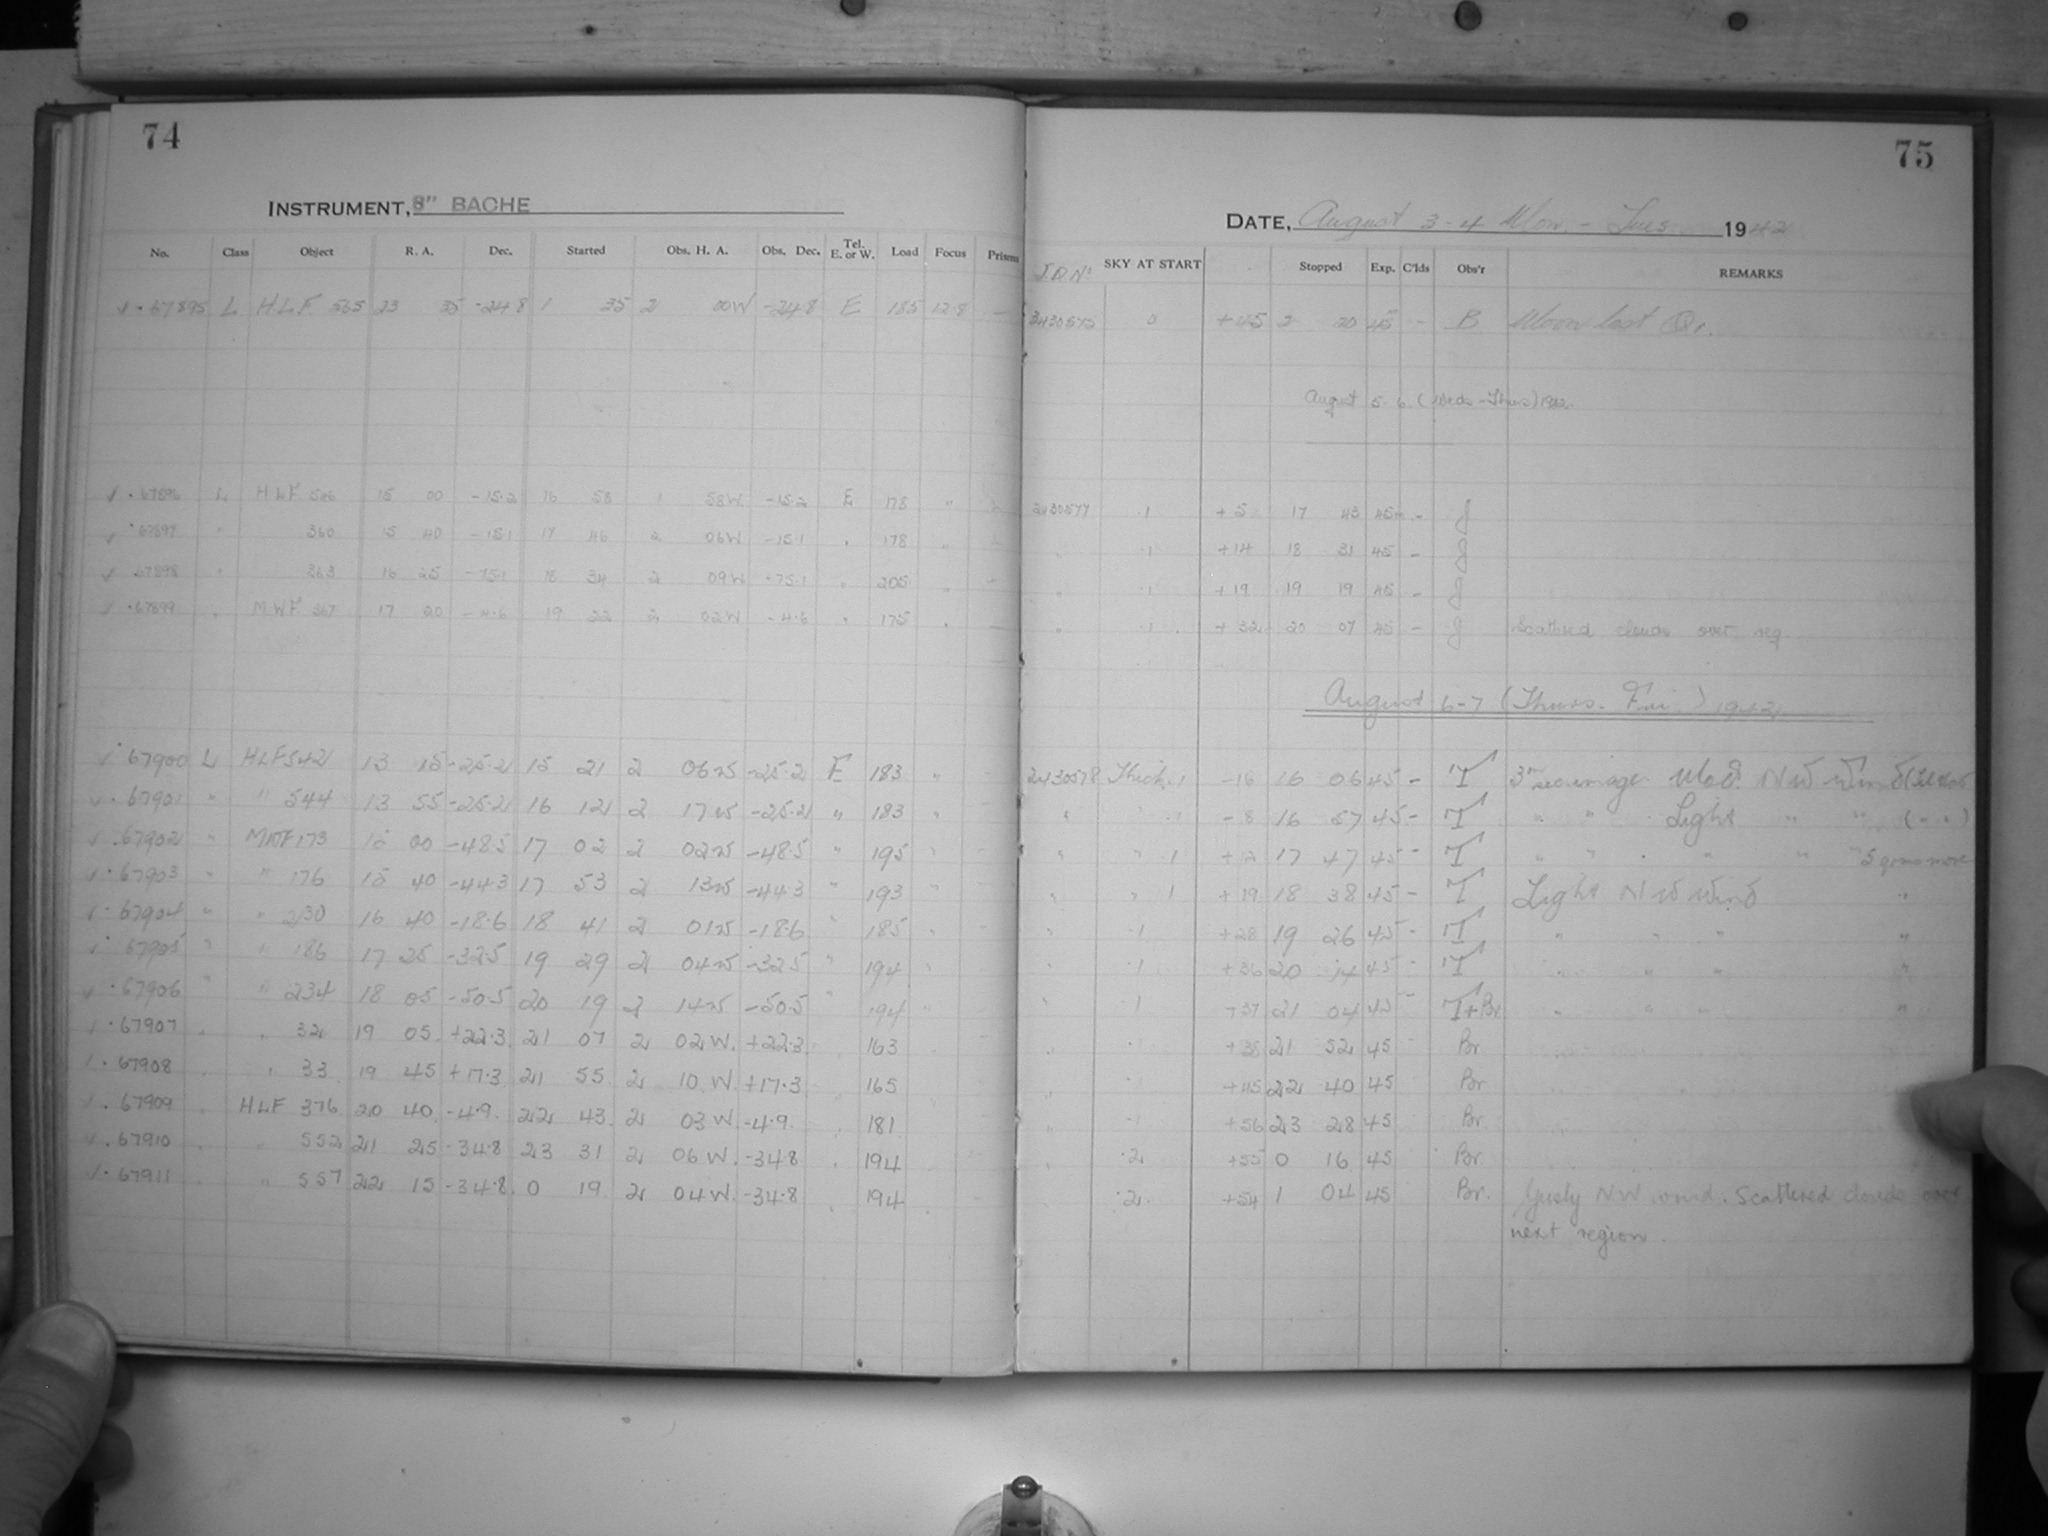 74
INSTRUMENT, 8" BACHE
No. Class Object R. A. Dec. Started Obs. H. A. Obs. Dec. Tel. E. or W. Load Focus Prisms
67895 L HLF 565 23 35 -24.8 1 35 2 00W -24.8 E 185 12.8 -
67896 L HLF 15 00 -15.2 16 58 1 58W -15.2 E 178 "
67897 " 360 15 40 -15.1 17 46 2 06W -15.1 " 178 "
67898 " 363 16 25 -75.1 18 34 2 09W -75.1 " 205 " -
67899 " MWF 367 17 20 -4.6 19 22 2 02W -4.6 " 175 " -
67900 L HLF 542 13 15 -25.2 15 21 2 06W -25.2 E 183 " -
67901 " " 544 13 55 -25.2 16 12 2 17W -25.2 " 183 "
67902 " MWF 173 15 00 -48.5 17 02 2 02W -48.5 " 195 "
67903 " " 176 15 40 -44.3 17 53 2 13W -44.3 " 193 "
67904 " " 230 16 40 -18.6 18 41 2 01W -18.6 " 185 "
67905 " " 186 17 25 -32.5 19 29 2 04W -32.5 " 194 "
67906 " " 234 18 05 -50.5 20 19 2 14W -50.5 " 194 "
67907 " " 32 19 05 +22.3 21 07 2 02W. +22.3 " 163
67908 " " 33 19 45 +17.3 21 55 2 10 W +17.3 " 165
67909 " HLF 376 20 40 -4.9 22 43 2 03W -4.9 " 181
67910 " " 552 21 25 -34.8 23 31 2 06W. -34.8 " 194
67911 " " 557 22 15 -34.8 0 19 2 04W. -34.8 " 194
75
DATE, August 3-4 Mon. - Tues. 1942
J.D. No SKY AT START Stopped Exp. C'lds Obs'r REMARKS
2430575 0 +45 2 20 45 - B Moon last Qr.
August 5-6 (Weds-Thurs) 1942.
2430577 .1 +5 17 43 45 - J
" .1 +14 18 31 45 - J
" .1 +19 19 19 45 - J
" .1 +32 20 07 45 - J Scattered clouds over reg
August 6-7 (Thurs. Fri.) 1942.
2430578 Thick .1 -16 16 06 45 - T Mod. NW wind
" " .1 -8 16 57 45 - T " " Light " " (" ")
" " .1 17 47 45 - T " " " " " " 5 gms more
" " .1 +19 18 38 45 - T Light NW wind "
" .1 +28 19 26 45 - T " " " "
" .1 +36 20 14 45 - T " " " "
" .1 +37 21 04 45 - T+Br. " " " "
" .1 +38 21 52 45 Br.
" .1 +45 22 40 45 Br.
" .1 +56 23 28 45 Br.
.2 +55 0 16 45 Br.
.2 +54 1 04 45 Br. Gusty NW wind. Scattered clouds over
next region.